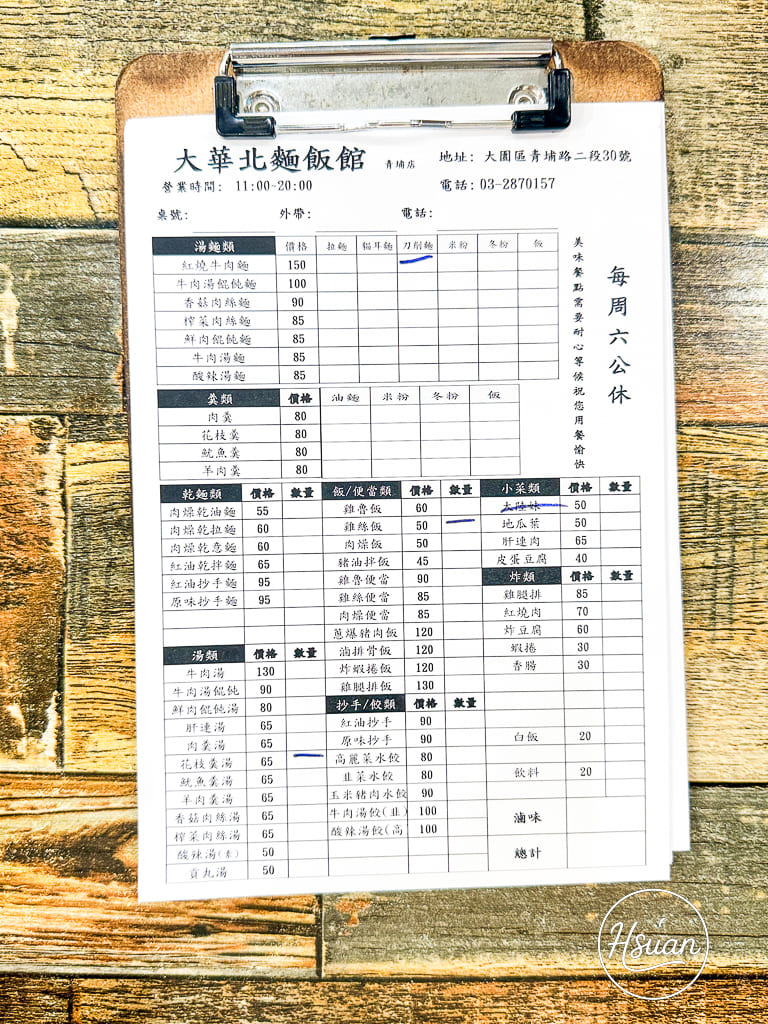 大華北麵飯館 青埔店
地址: 大園區青埔路二段30號
營業時間: 11:00~20:00
電話: 03-2870157
桌號: 外帶: 電話:
湯麵類 價格 拉麵 貓耳麵 刀削麵 米粉 冬粉 飯
紅燒牛肉麵 150
牛肉湯餛飩麵 100
香菇肉絲麵 90
榨菜肉絲麵 85
鮮肉餛飩麵 85
牛肉湯麵 85
酸辣湯麵 85
美味餐點需要耐心等候祝您用餐愉快
每周六公休
羹類 價格 油麵 米粉 冬粉 飯
肉羹 80
花枝羹 80
魷魚羹 80
羊肉羹 80
乾麵類 價格 數量
肉燥乾油麵 55
肉燥乾拉麵 60
肉燥乾意麵 60
紅油乾拌麵 65
紅油抄手麵 95
原味抄手麵 95
湯類 價格 數量
牛肉湯 130
牛肉湯餛飩 90
鮮肉餛飩湯 80
肝連湯 65
肉羹湯 65
花枝羹湯 65
魷魚羹湯 65
羊肉羹湯 65
香菇肉絲湯 65
榨菜肉絲湯 65
酸辣湯(素) 50
貢丸湯 50
飯/便當類 價格 數量
雞魯飯 60
雞絲飯 50
肉燥飯 50
豬油拌飯 45
雞魯便當 90
雞絲便當 85
肉燥便當 85
蔥爆豬肉飯 120
滷排骨飯 120
炸蝦捲飯 120
雞腿排飯 130
抄手/餃類 價格 數量
紅油抄手 90
原味抄手 90
高麗菜水餃 80
韭菜水餃 80
玉米豬肉水餃 90
牛肉湯餃(韭) 100
酸辣湯餃(高 100
小菜類 價格 數量
大陸妹 50
地瓜葉 50
肝連肉 65
皮蛋豆腐 40
炸類 價格 數量
雞腿排 85
紅燒肉 70
炸豆腐 60
蝦捲 30
香腸 30
白飯 20
飲料 20
滷味
總計
Hsuan